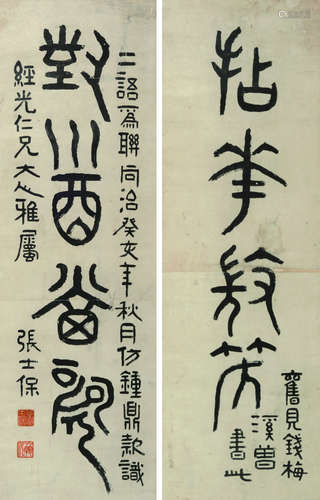 拈華微笑
舊見錢梅
溪曾書此
二語爲聯同治癸亥年秋月仿鍾鼎款識
對酒當歌
經光仁兄大人雅屬
張士保